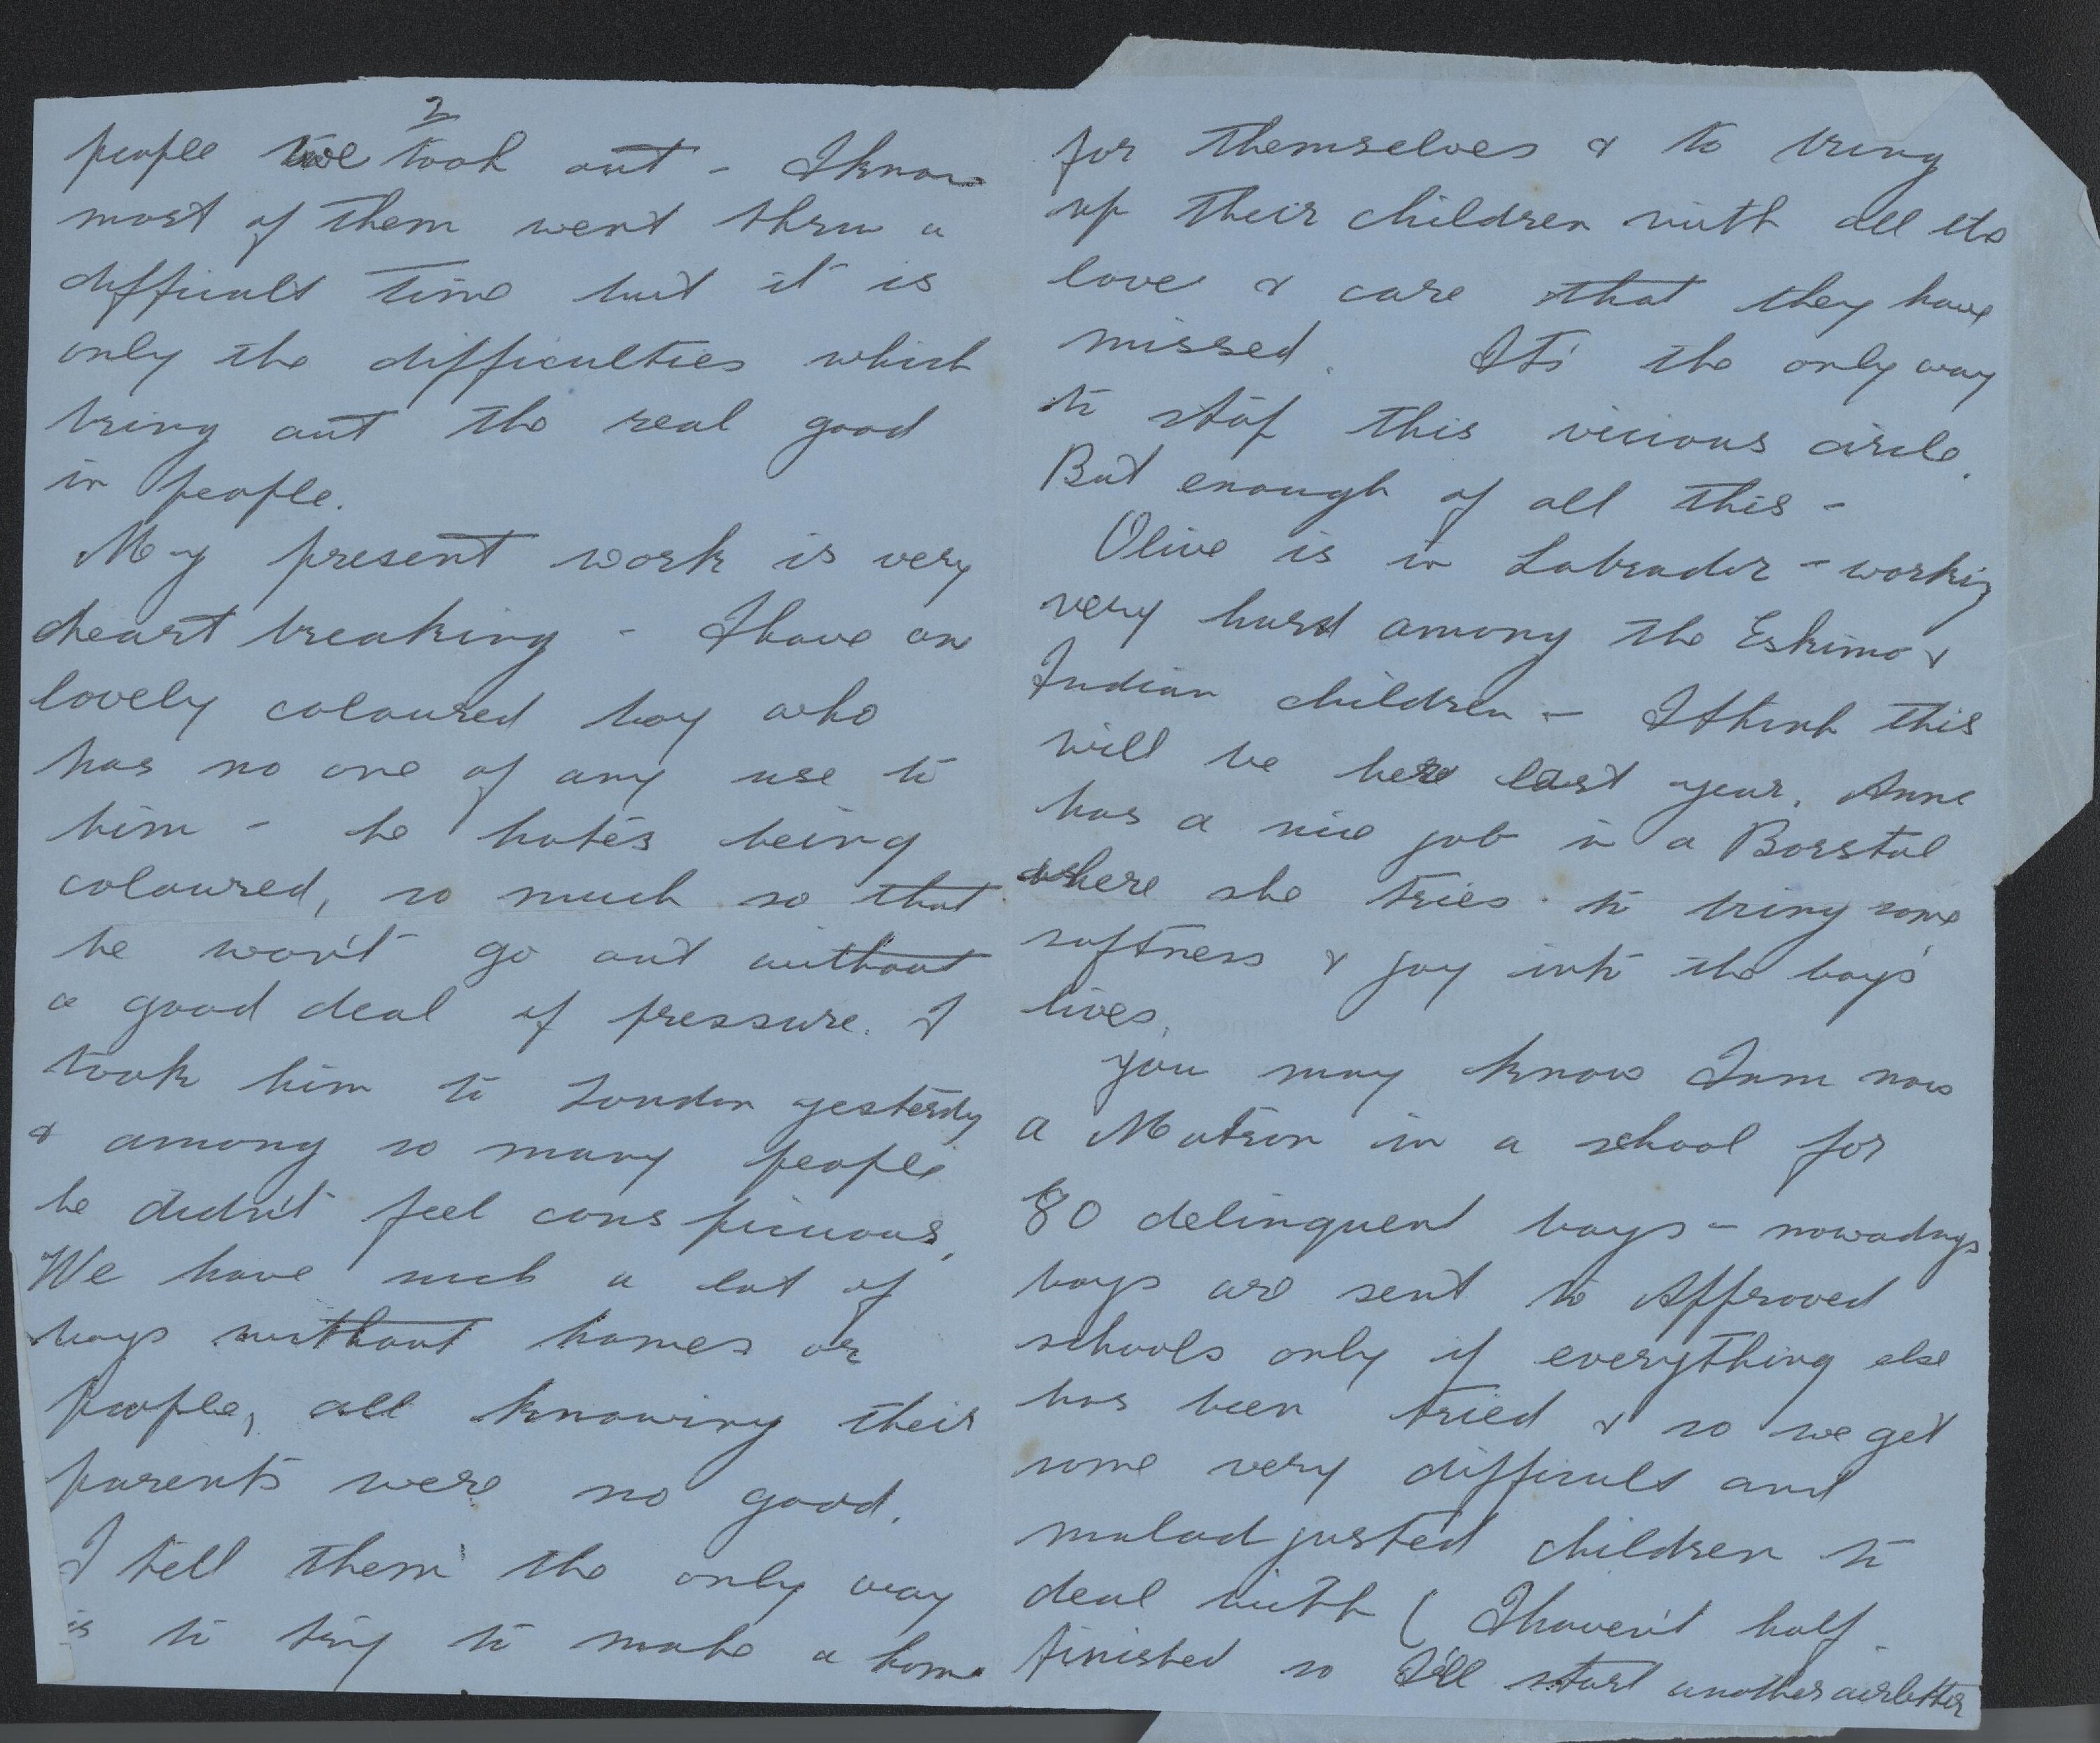 2
people we took out - I know
most of them went thru a
difficult time but it is
only the difficulties which
bring out the real good
in people.
My present work is very
heart breaking - I have one
lovely coloured boy who
has no one of any use to
him - he hates being
coloured, so much so that
he won't go out without
a good deal of pressure. I
took him to London yesterday
& among so many people
he didn't feel conspicuous.
We have such a lot of
boys without homes or
people, all knowing their
parents were no good.
I tell them the only way
is to try to make a home
for themselves & to bring
up their children with all the
love & care that they have
missed. It's the only way
to stop this vicious circle.
But enough of all this -
Olive is in Labrador - working
very hard among the Eskimo &
Indian children - I think this
will be her last year. Anne
has a nice job in a Borstal
where she tries to bring some
softness & joy into the boys'
lives.
You may know I am now
a Matron in a school for
80 delinquent boys - nowadays
boys are sent to Approved
schools only if everything else
has been tried & so we get
some very difficult and
maladjusted children to
deal with (I haven't half
finished so I'll start another airletter